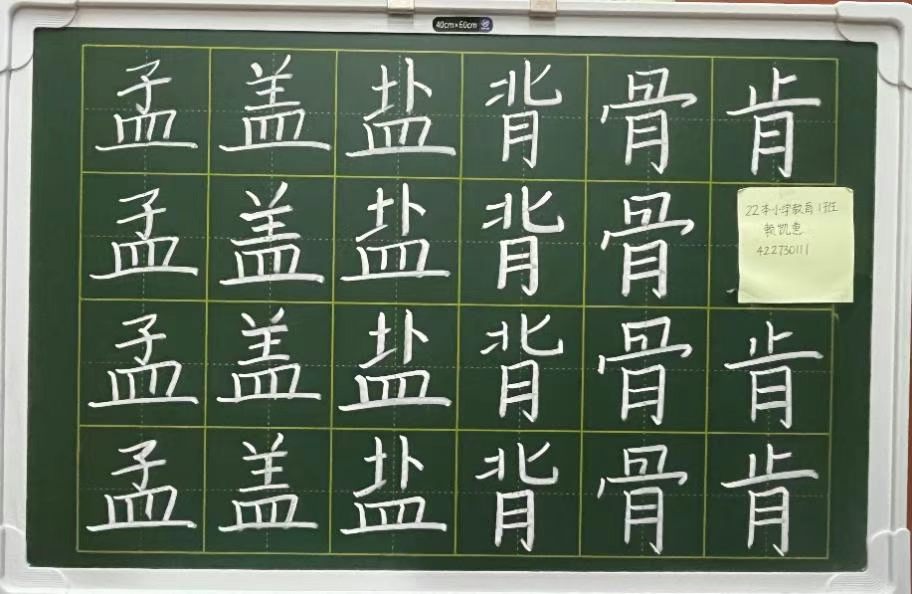 40cm×60cm
孟盖盐背骨肯
孟盖盐背骨
22本小学教育1班
赖凯惠
422730111
孟盖盐背骨肯
孟盖盐背骨肯